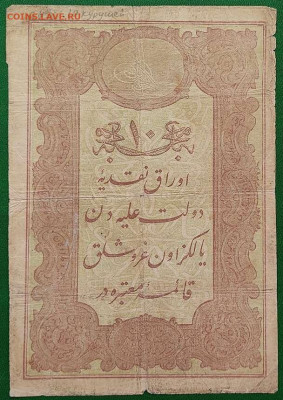 COINS.LAVE.RU
١٠
اوراق نقديه
دولت عليه دن
يالكز اون غروشلق
قائمه معتبره در